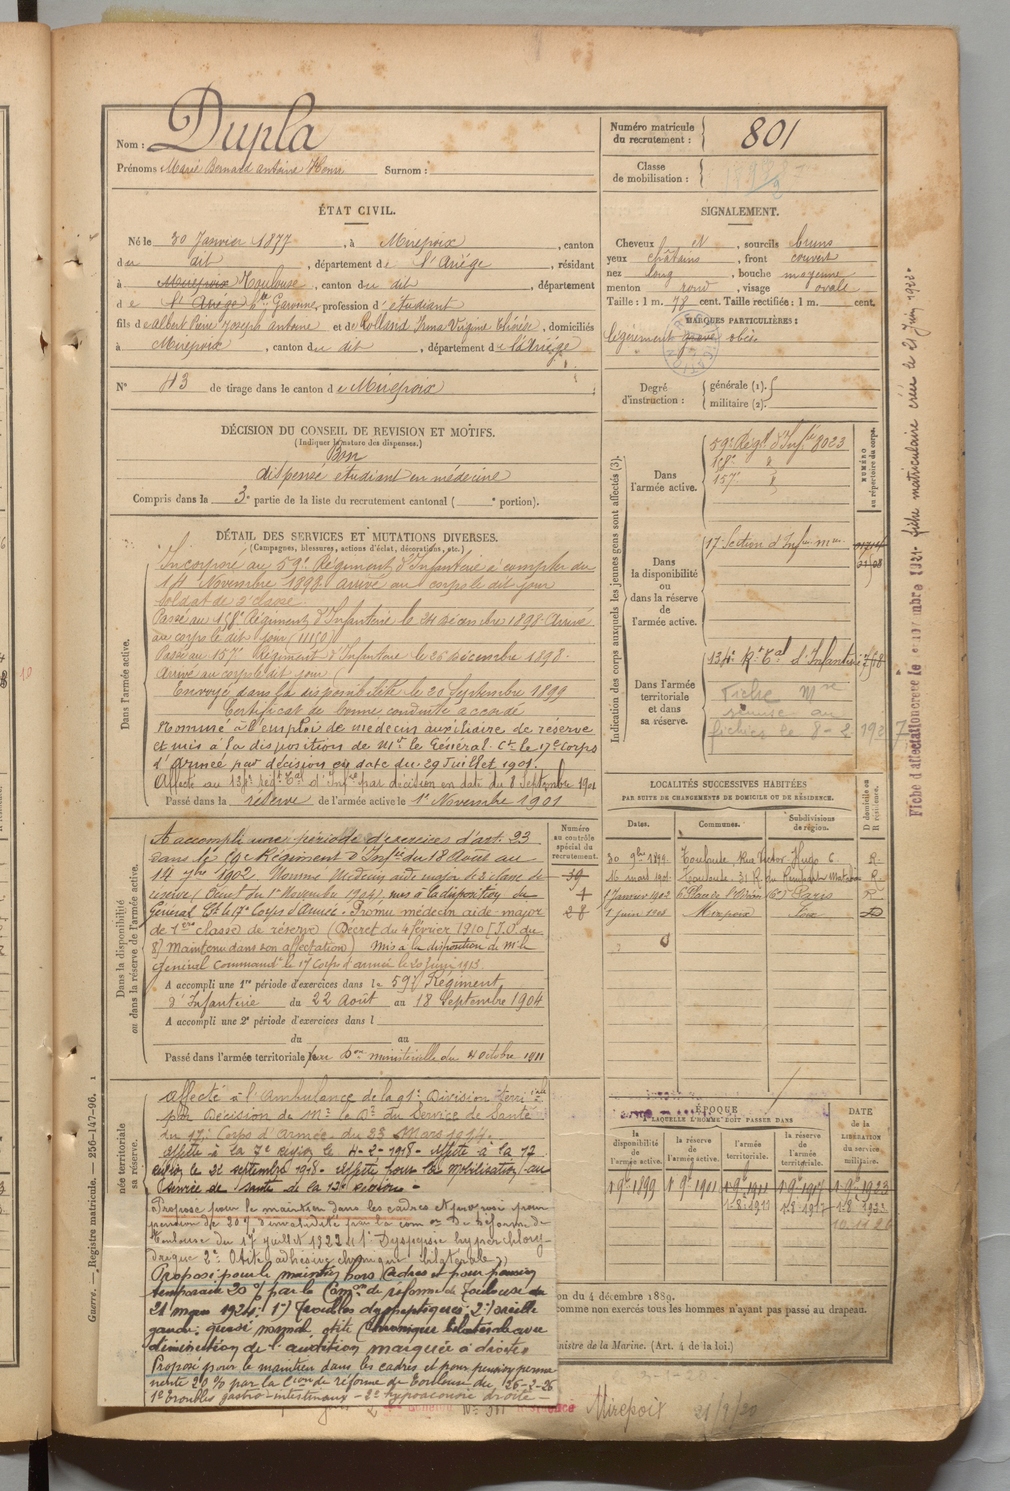 Nom : Dupla
Prénoms Marie Bernard Antoine Henri Surnom :
Numéro matricule du recrutement : 801
Classe de mobilisation :
ÉTAT CIVIL.
Né le 30 Janvier 1877, à Mirepoix, canton
du dit, département de l'Ariége, résidant
à Mirepoix Toulouse, canton du dit, département
de l'Ariége Hte Garonne, profession d'étudiant
fils d'Albert Pierre Joseph Antoine et de Rolland Irma Virginie Thérèse, domiciliés
à Mirepoix, canton du dit, département de l'Ariége
N° 43 de tirage dans le canton de Mirepoix
SIGNALEMENT.
Cheveux N, sourcils bruns
yeux châtains, front couvert
nez long, bouche moyenne
menton rond, visage ovale
Taille : 1 m. 78 cent. Taille rectifiée : 1 m. cent.
MARQUES PARTICULIÈRES :
légèrement grave obèse
Degré d'instruction : générale (1). militaire (2).
DÉCISION DU CONSEIL DE REVISION ET MOTIFS.
(Indiquer la nature des dispenses.)
Bon
dispensé étudiant en médecine
Compris dans la 3e partie de la liste du recrutement cantonal ( e portion).
DÉTAIL DES SERVICES ET MUTATIONS DIVERSES.
(Campagnes, blessures, actions d'éclat, décorations, etc.)
Dans l'armée active.
Incorporé au 59e Régiment d'Infanterie à compter du
14 Novembre 1898 arrivé au corps le dit jour
soldat de 2e classe
Passé au 158e Régiment d'Infanterie le 24 décembre 1898 Arrivé
au corps le dit jour (11150)
Passé au 157e Régiment d'Infanterie le 26 décembre 1898.
Arrivé au corps le dit jour
Envoyé dans la disponibilité le 20 Septembre 1899
Certificat de bonne conduite accordé
Nommé à l'emploi de médecin auxiliaire de réserve
et mis à la disposition de Mr le Général Ct le 17e Corps
d'Armée par décision en date du 29 Juillet 1901.
Affecté au 134e Régt Tal d'Infie par décision en date du 8 Septembre 1901
Passé dans la réserve de l'armée active le 1er Novembre 1901
Indication des corps auxquels les jeunes gens sont affectés (3).
NUMÉRO au répertoire du corps.
Dans l'armée active.
59e Régt d'Infie 8023
158e
157e
Dans la disponibilité ou dans la réserve de l'armée active.
17e Section d'Infirs mres
Dans l'armée territoriale et dans sa réserve.
134e Rt Tal d'Infanterie
Fiche Mre
remise au
fichier le 8-2 1927
Fiche d'affectation créée le novembre 1921 fiche matriculaire créée le 21 Juin 1923.
Dans la disponibilité ou dans la réserve de l'armée active.
Numéro au contrôle spécial du recrutement.
A accompli une période d'exercices d'art. 23
dans le 59e Régiment d'Infie du 18 Août au
14 7bre 1902. Nommé Médecin aide major de 2e classe de
réserve (Décret du 1er Novembre 1904) mis à la disposition du
Général Ct le 17e Corps d'Armée. Promu médecin aide-major
de 1ère classe de réserve (Décret du 4 février 1910 [J.O. du
8) Maintenu dans son affectation) Mis à la disposition de Mr le
Général Commandt le 17 Corps d'armée le 20 Juin 1913.
A accompli une 1re période d'exercices dans le 59e Régiment
d'Infanterie du 22 Août au 18 Septembre 1904
A accompli une 2e période d'exercices dans l
du au
Passé dans l'armée territoriale par Don ministérielle du 4 octobre 1911
39
28
LOCALITÉS SUCCESSIVES HABITÉES
PAR SUITE DE CHANGEMENTS DE DOMICILE OU DE RÉSIDENCE.
Dates. Communes. Subdivisions de région. D domicile ou R résidence.
30 9bre 1899. Toulouse, Rue Victor Hugo 6 R.
16 mars 1901. Toulouse. 31 R. du Rempart Matabiau R.
1 Janvier 1902 6 Place de l'Odéon (6e) Paris R
1 Juin 1908 Mirepoix Foix D
ÉPOQUE
À LAQUELLE L'HOMME DOIT PASSER DANS
DATE de la LIBÉRATION DU SERVICE militaire.
la disponibilité de l'armée active. la réserve de l'armée active. l'armée territoriale. la réserve de l'armée territoriale.
1 9bre 1899 1 9bre 1901 1 9bre 1911 1 9bre 1917 1 9bre 1923
1.8.1911 1.8.1917 1.8.1923
10.11.26
Affecté à l'Ambulance de la 91e Division terrile
par Décision de Mr le Dr du Service de Santé
du 17e Corps d'Armée du 23 Mars 1914.
Affecté à la 7e région le 4-2-1918. Affecté à la 17
région le 21 septembre 1918. Affecté pour la mobilisation au
service de santé de la 17e région.
Proposé pour le maintien dans les cadres et proposé pour
pension de 20% d'invalidité par la comon De Réforme de
Toulouse du 17 juillet 1922 1° Dyspepsie hyperchlorydrique
2° Otite adhésive chronique bilatérale
Proposé pour le maintien hors Cadres et pour pension
temporaire 20 % par la Comon de réforme de Toulouse du
21 mars 1924. 1°) Troubles dyspeptiques 2°) oreille
gauche quasi normal, otite chronique bilatérale avec
diminution de l'audition marquée à droite
Proposé pour le maintien dans les cadres et pour pension permanente
20 % par la Cion de réforme de Toulouse du 26-2-26
1° Troubles gastro-intestinaux - 2° hypoacousie droite -
on du 4 décembre 1889.
comme non exercés tous les hommes n'ayant pas passé au drapeau.
inistre de la Marine. (Art. 4 de la loi.)
Mirepoix 21/9/30
Guerre. — Registre matricule. — 256-147-96.